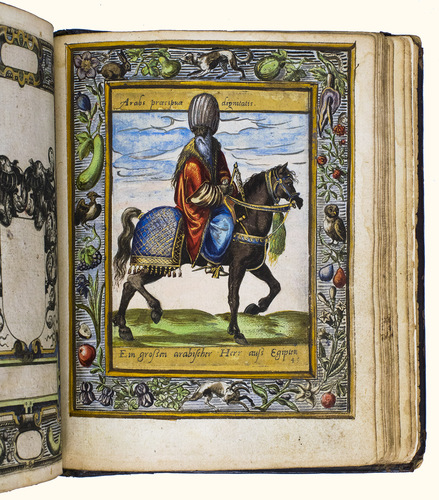 Arabs præcipuæ dignitatis.
Ein grossen arabischer Herr auss Egipten